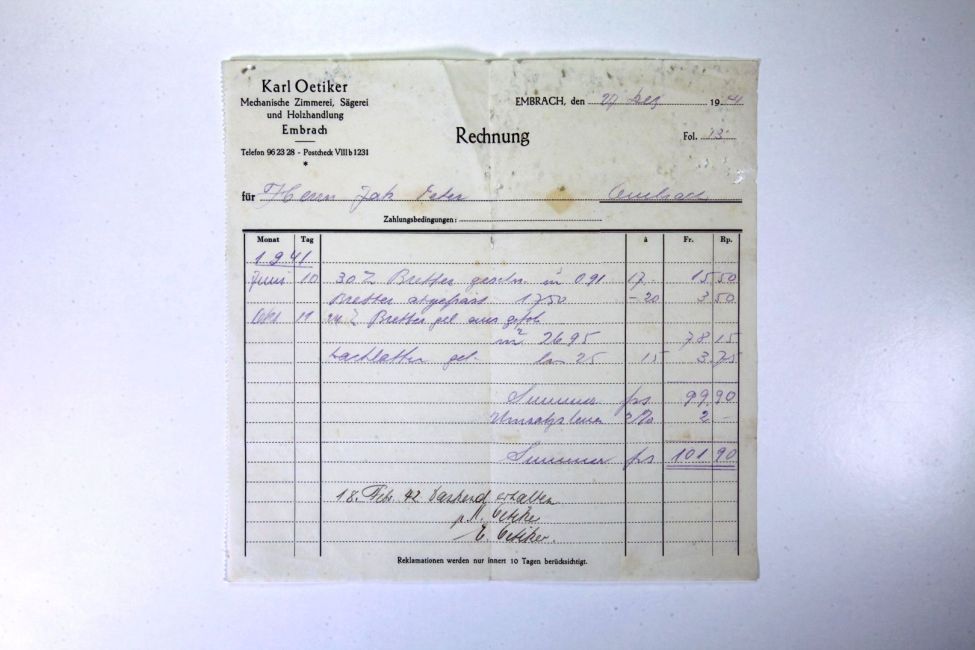 Karl Oetiker
Mechanische Zimmerei, Sägerei
und Holzhandlung
Embrach
Telefon 96 23 28 - Postcheck VIII b 1231
*
EMBRACH, den 27 Dez 1941
Rechnung
Fol. 13
für Herrn Jak Peter Embrach
Zahlungsbedingungen:
Monat Tag à Fr. Rp.
1941
Juni 10 30 Bretter in 0.91 17. 15.50
Bretter abgefräst 17.50 -20 3.50
Okt 11 24 Bretter
m² 26.95 78.15
Dachlatten 25 15 3.75
Summa frs 99.90
Umsatzsteuer 2% 2
Summa frs 101.90
18. Febr. 42 dankend erhalten
p. K. Oetiker
E. Oetiker.
Reklamationen werden nur innert 10 Tagen berücksichtigt.